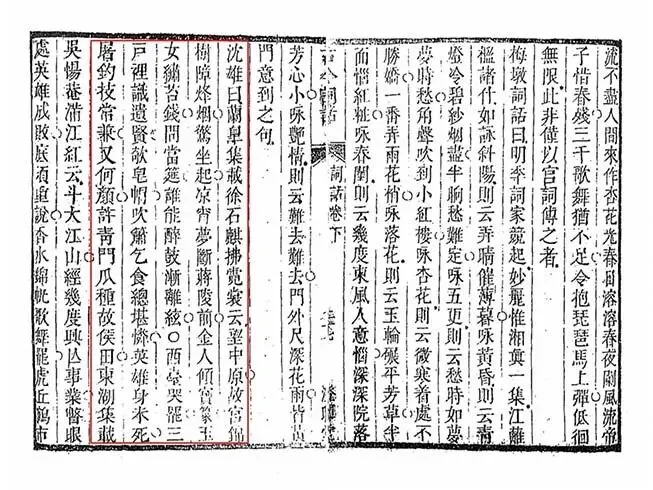 流不盡人間來作杏花光春日溶溶春夜闌風流帝
子惜春殘三千歌舞猶不足令抱琵琶馬上彈低徊
無限此非僅以宮詞傳之者
梅墩詞話曰明季詞家競起妙麗惟湘真一集江蘺
檻諸什如詠斜陽則云弄晴催薄暮咏黃昏則云靑
燈冷碧紗烟盡半胸愁難定咏五更則云愁時如夢
夢時愁角聲吹到小紅樓咏杏花則云微寒着處不
勝嬌一番弄雨花梢咏落花則云玉輪碾平芳草半
面惱紅粧咏春閨則云幾度東風人意惱深深院落
芳心小咏艷情則云難去難去門外尺深花雨皆黃
門意到之句
詞話卷下
沈雄曰蘭臯集載徐石麒拂霓裳云望中原故宮錦
樹障烽烟驚坐起凉宵夢斷蔣陵前金人傾寶篆玉
女繡苔錢問當筵誰能醉鼓漸離絃〇西臺哭罷三
戶裡識遺賢欹皂帽吹簫乞食總堪憐英雄身未死
屠釣技常兼又何顏許靑門瓜種故侯田東湖集載
吳惕菴滿江紅云斗大江山經幾度興亾事業瞥眼
處英雄成敗底須重說香水錦帆歌舞罷虎丘鶴市